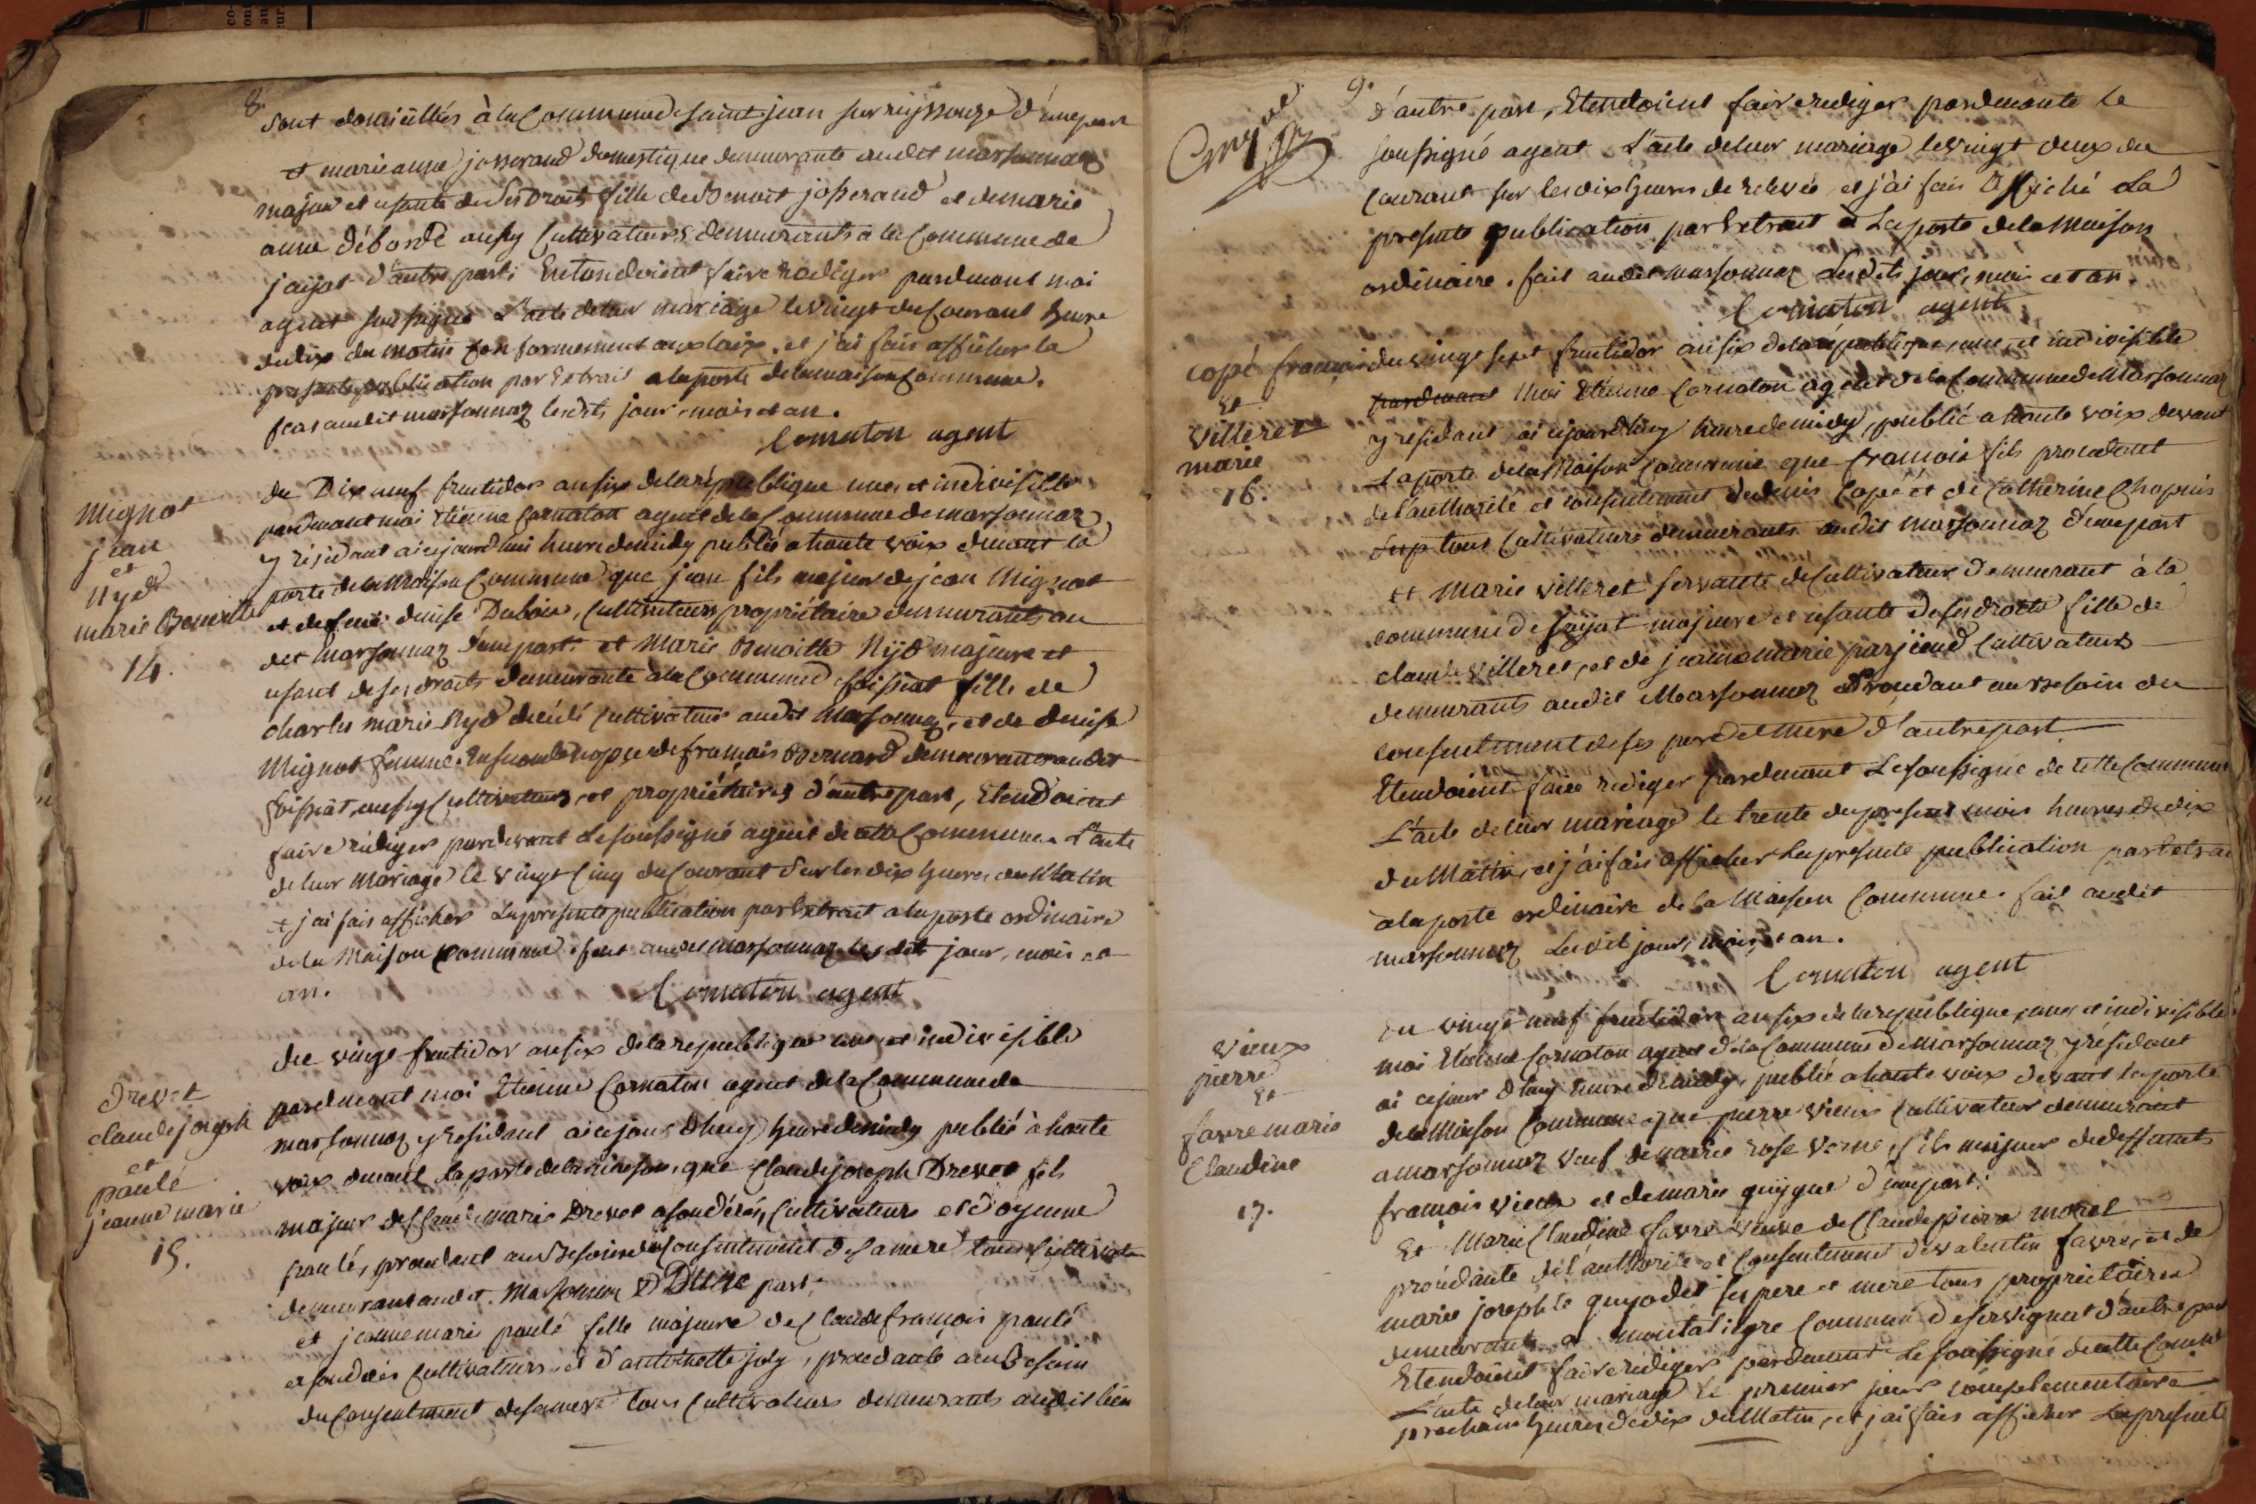 8.
sont domicilliés à la Commune de saint jean sur reyssouze d'une part
et marie anne josserand domestique demeurante audit marsonnaz
majeur et usante de ses Droits fille de Benoit josserand et de marie
anne débordé aussy Cultivateurs demeurants à la Commune de
jayat d'autre part. Entendoient faire rediger pardevant moi
agent soussigné L'acte de leur mariage le vingt du Courant heure
de dix du matin conformement aux loix. et j'ai fais afficher la
presente publication par Extrait a la porte de la maison Commune.
fcas audit marsonnaz lesdits jour, mois et an.
Cornaton agent
Mignot
jean
et
Nyd
marie Benoitte
14.
du Dix neuf fructidor an six de la république une et indivisible
pardevant moi Etienne Cornaton agent de la Commune de marsonnaz
y résidant ai cejourd'hui heure de midy publié a haute voix devant la
porte de la Maison Commune que jean fils majeur de jean Mignot
et de feue denise Dubois, Cultivateurs propriétaire demeurants au
dit Marsonnaz d'une part. et Marie Benoitte Nyd majeure et
usant de ses droits demeurante a la Commune de foissiat fille de
charles marie Nyd décédé Cultivateur audit Marsonnaz, et de denise
Mignot femme En seconde noppce de françois Bernard demeurant audit
foissiat, aussy Cultivateurs et propriétaires d'autre part, Etendoient
faire rédiger pardevant Le soussigné agent de cette Commune L'acte
de leur Mariage le vingt Cinq du Courant Sur les dix heures du Matin
et j'ai fais afficher La presente publication par Extrait a la porte ordinaire
de la Maison Commune. fait audit marsonnaz lesdit jour, mois et
an.
Cornaton agent
Drevet
claude joseph
et
paulé
jeanne marie
15.
du vingt fructidor an six de la republique une et indivisible
pardevant moi Etienne Cornaton agent de la Commune de
marsonnaz y Residant ai cejourd'huy heure de midy publié à haute
voix devant la porte de la maison, que Claude joseph Drevet fils
majeur de Claude Marie Drevet Cultivateurs et d'oyenne
paulé, procedant au Besoin du Consentement de sa mere tous Cultivateurs
demeurans audit. Marsonnaz D'Une part,
et jeanne marie paulé fille majeure de Claude françois paulé
Cultivateurs et d'antoinette joly, procedante au Besoin
du Consentement de sa mere tous Cultivateurs demeurants audit lieu
9.
d'autre part, Etendoient faire rediger pardevante le
soussigné agent L'acte de leur mariage le vingt deux du
Courant sur les dix heures de relevée, et j'ai fais Affiché La
presente publication par Extrait a La porte de la Maison
ordinaire. fait audit marsonnaz lesdits jour, mois et an.
Cornaton agent
copé françois
Et
Villeret
marie
16.
du vingt sept fructidor an six de la république une et indivisible
pardevant Moi Etienne Cornaton agent de la Commune de Marsonnaz
y residant, ai cejourd'huy heure de midy, publié a haute voix devant
La porte de la Maison Commune que francois fils procedant
de l'authorité et consentement de denis Copé et de Catherine Chapuis
tous Cultivateurs demeurants audit Marsonnaz d'une part
et Marie villeret servante de Cultivateur demeurant à la
commune de Jayat majeure et usante de ses droits fille de
claude villeret, et de jeanne marie parjiend Cultivateurs
demeurants audit Marsonnaz Procedant au Besoin du
consentement de ses pere et Mere d'autre part
Etendoient faire rediger pardevant Le soussigné de cette Commune
L'acte de leur mariage le trente du present mois heures de dix
du Matin, et j'ai fais afficher La presente publication par Extrait
a la porte ordinaire de la Maison Commune. fait audit
marsonnaz Lesdit jour, mois et an.
Cornaton agent
vieux
pierre
Et
favre marie
Claudine
17.
Du vingt neuf fructidor an six de la republique, une et indivisible
moi Etienne Cornaton agent de la Commune de Marsonnaz y résidant
ai cejour d'huy heure de midy, publié a haute voix devant la porte
de la Maison Commune que pierre vieux Cultivateur demeurant
a marsonnaz veuf de marie rose verne, fils majeur de deffunts
francois vieux et de marie d'une part.
Et Marie Claudine favre veuve de Claude pierre morel
procédante de l'authorité et Consentement de valentin favre, et de
marie josephte guyodet ses pere et mere tous proprietaires
demeurants a commune de servignat d'autre part
Etendoient faire rédiger pardevant Le soussigné de cette Commune
L'acte de leur mariage le premier jour complementaire
prochain heures de dix du Matin, et j'ai fais afficher La presente